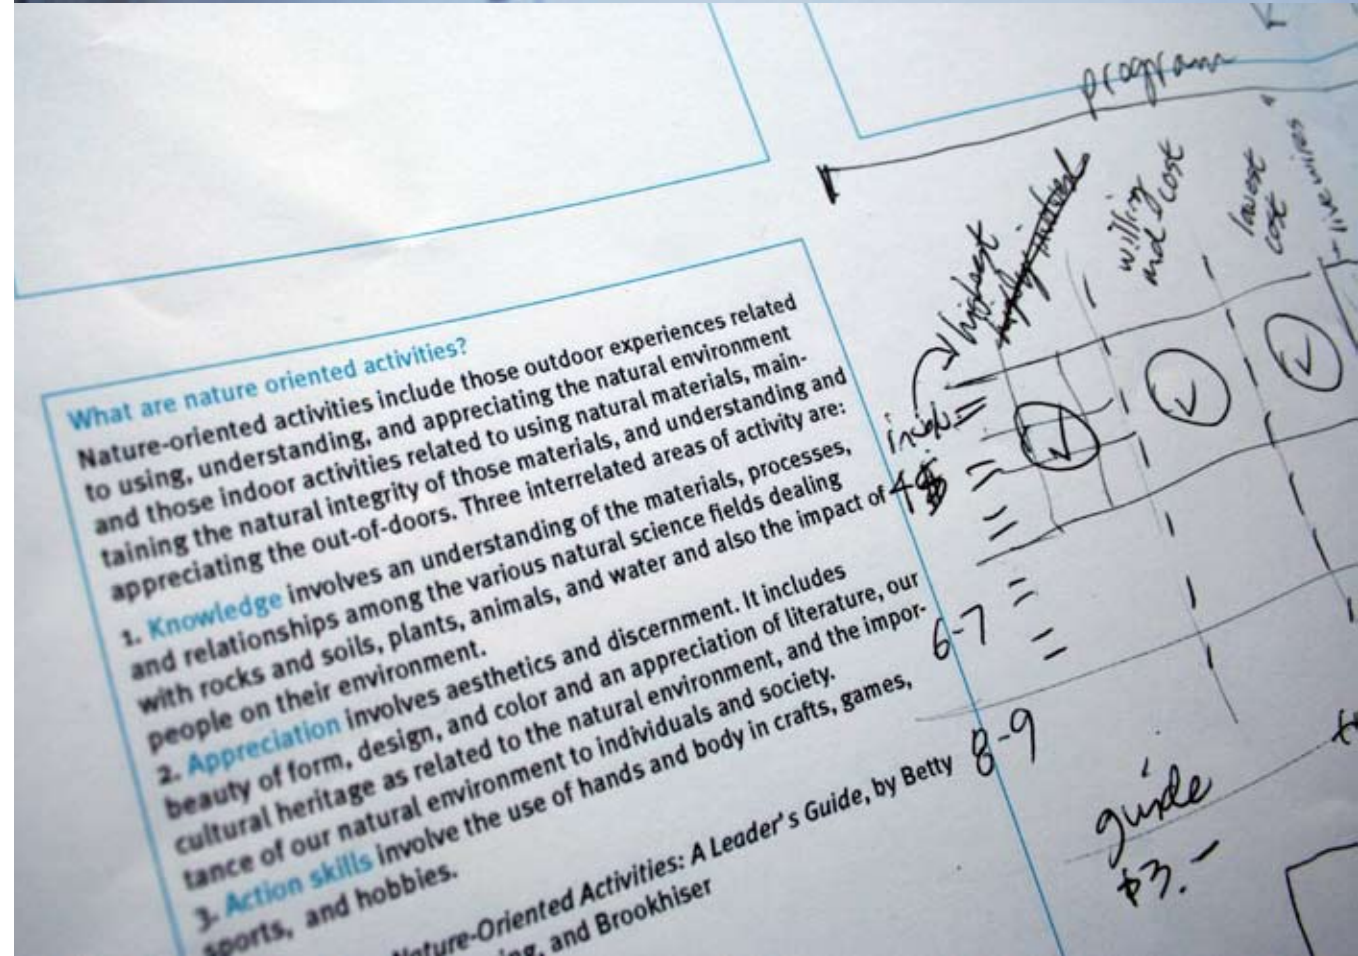 What are nature oriented activities?
Nature-oriented activities include those outdoor experiences related
to using, understanding, and appreciating the natural environment
and those indoor activities related to using natural materials, main-
taining the natural integrity of those materials, and understanding and
appreciating the out-of-doors. Three interrelated areas of activity are:
1. Knowledge involves an understanding of the materials, processes,
and relationships among the various natural science fields dealing
with rocks and soils, plants, animals, and water and also the impact of
people on their environment.
2. Appreciation involves aesthetics and discernment. It includes
beauty of form, design, and color and an appreciation of literature, our
cultural heritage as related to the natural environment, and the impor-
tance of our natural environment to individuals and society.
3. Action skills involve the use of hands and body in crafts, games,
sports, and hobbies.
Nature-Oriented Activities: A Leader's Guide, by Betty
and Brookhiser
program
highest
willing
and cost
lowest
cost
6-7
8-9
guide
$3.-